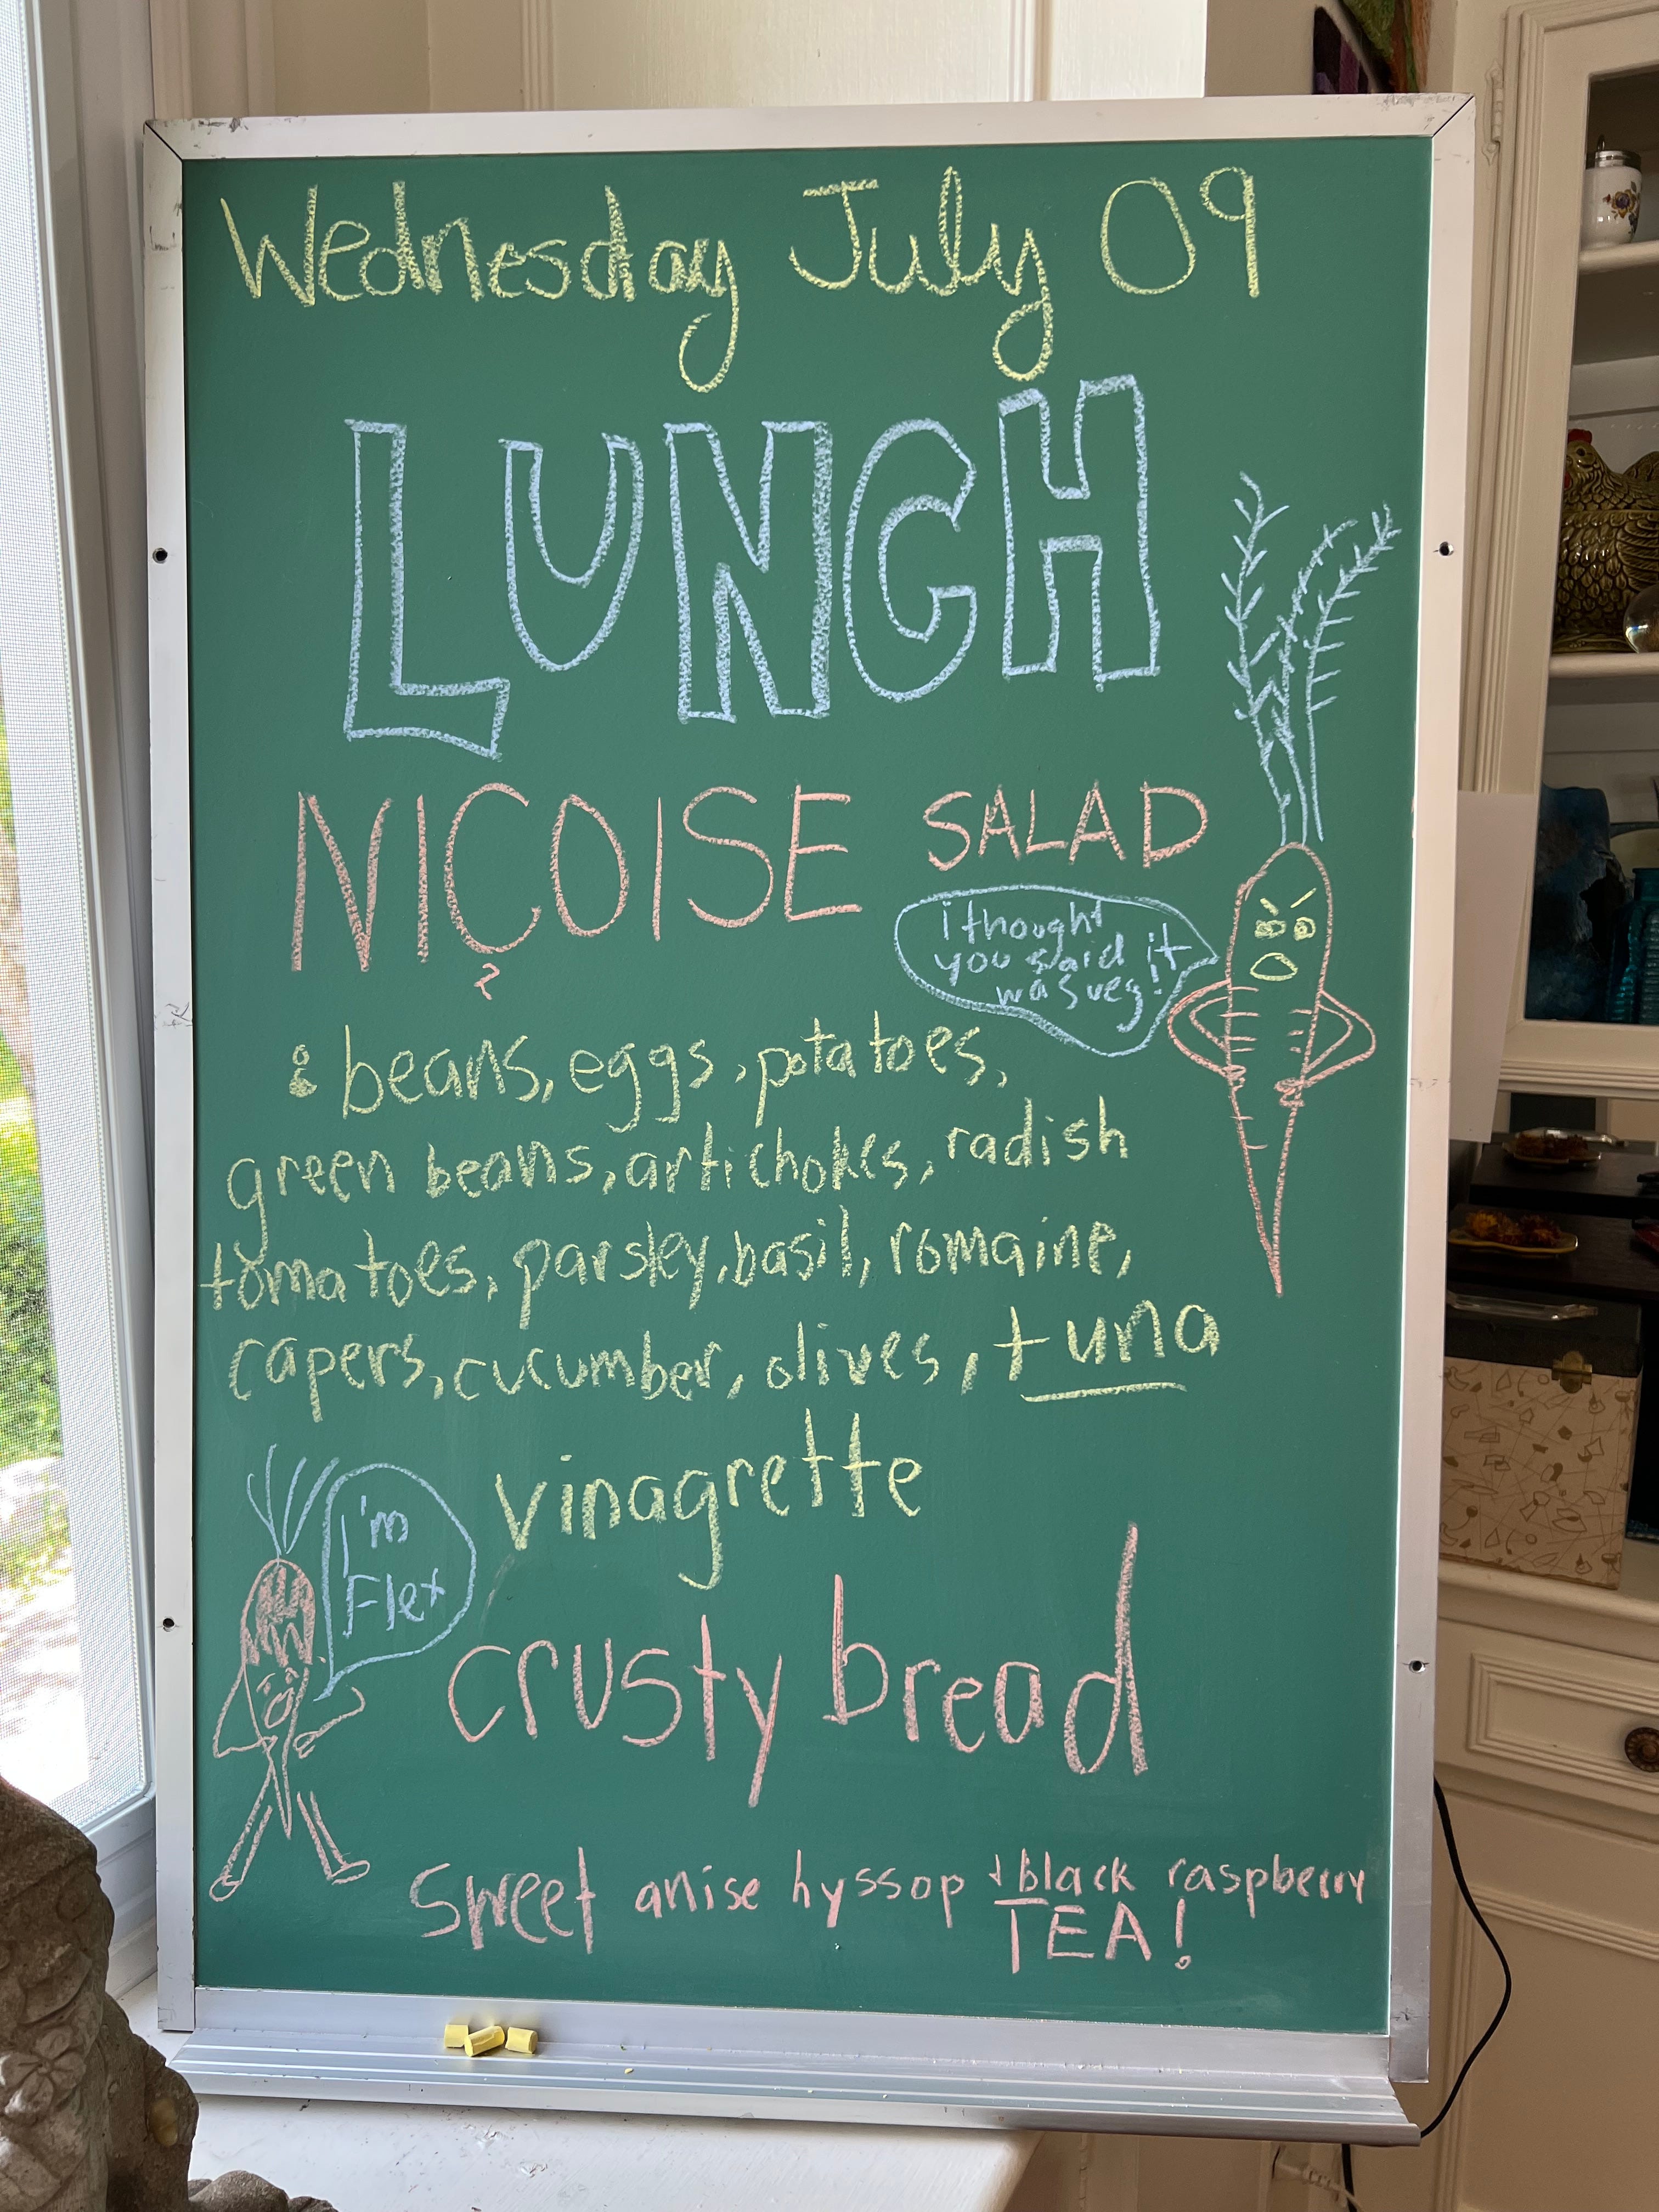 Wednesday July 09
LUNCH
NIÇOISE SALAD
i thought
you said it
was veg!
: beans, eggs, potatoes,
green beans, artichokes, radish
tomatoes, parsley, basil, romaine,
capers, cucumber, olives, tuna
vinagrette
I'm
Flex
crusty bread
Sweet anise hyssop + black raspberry
TEA!